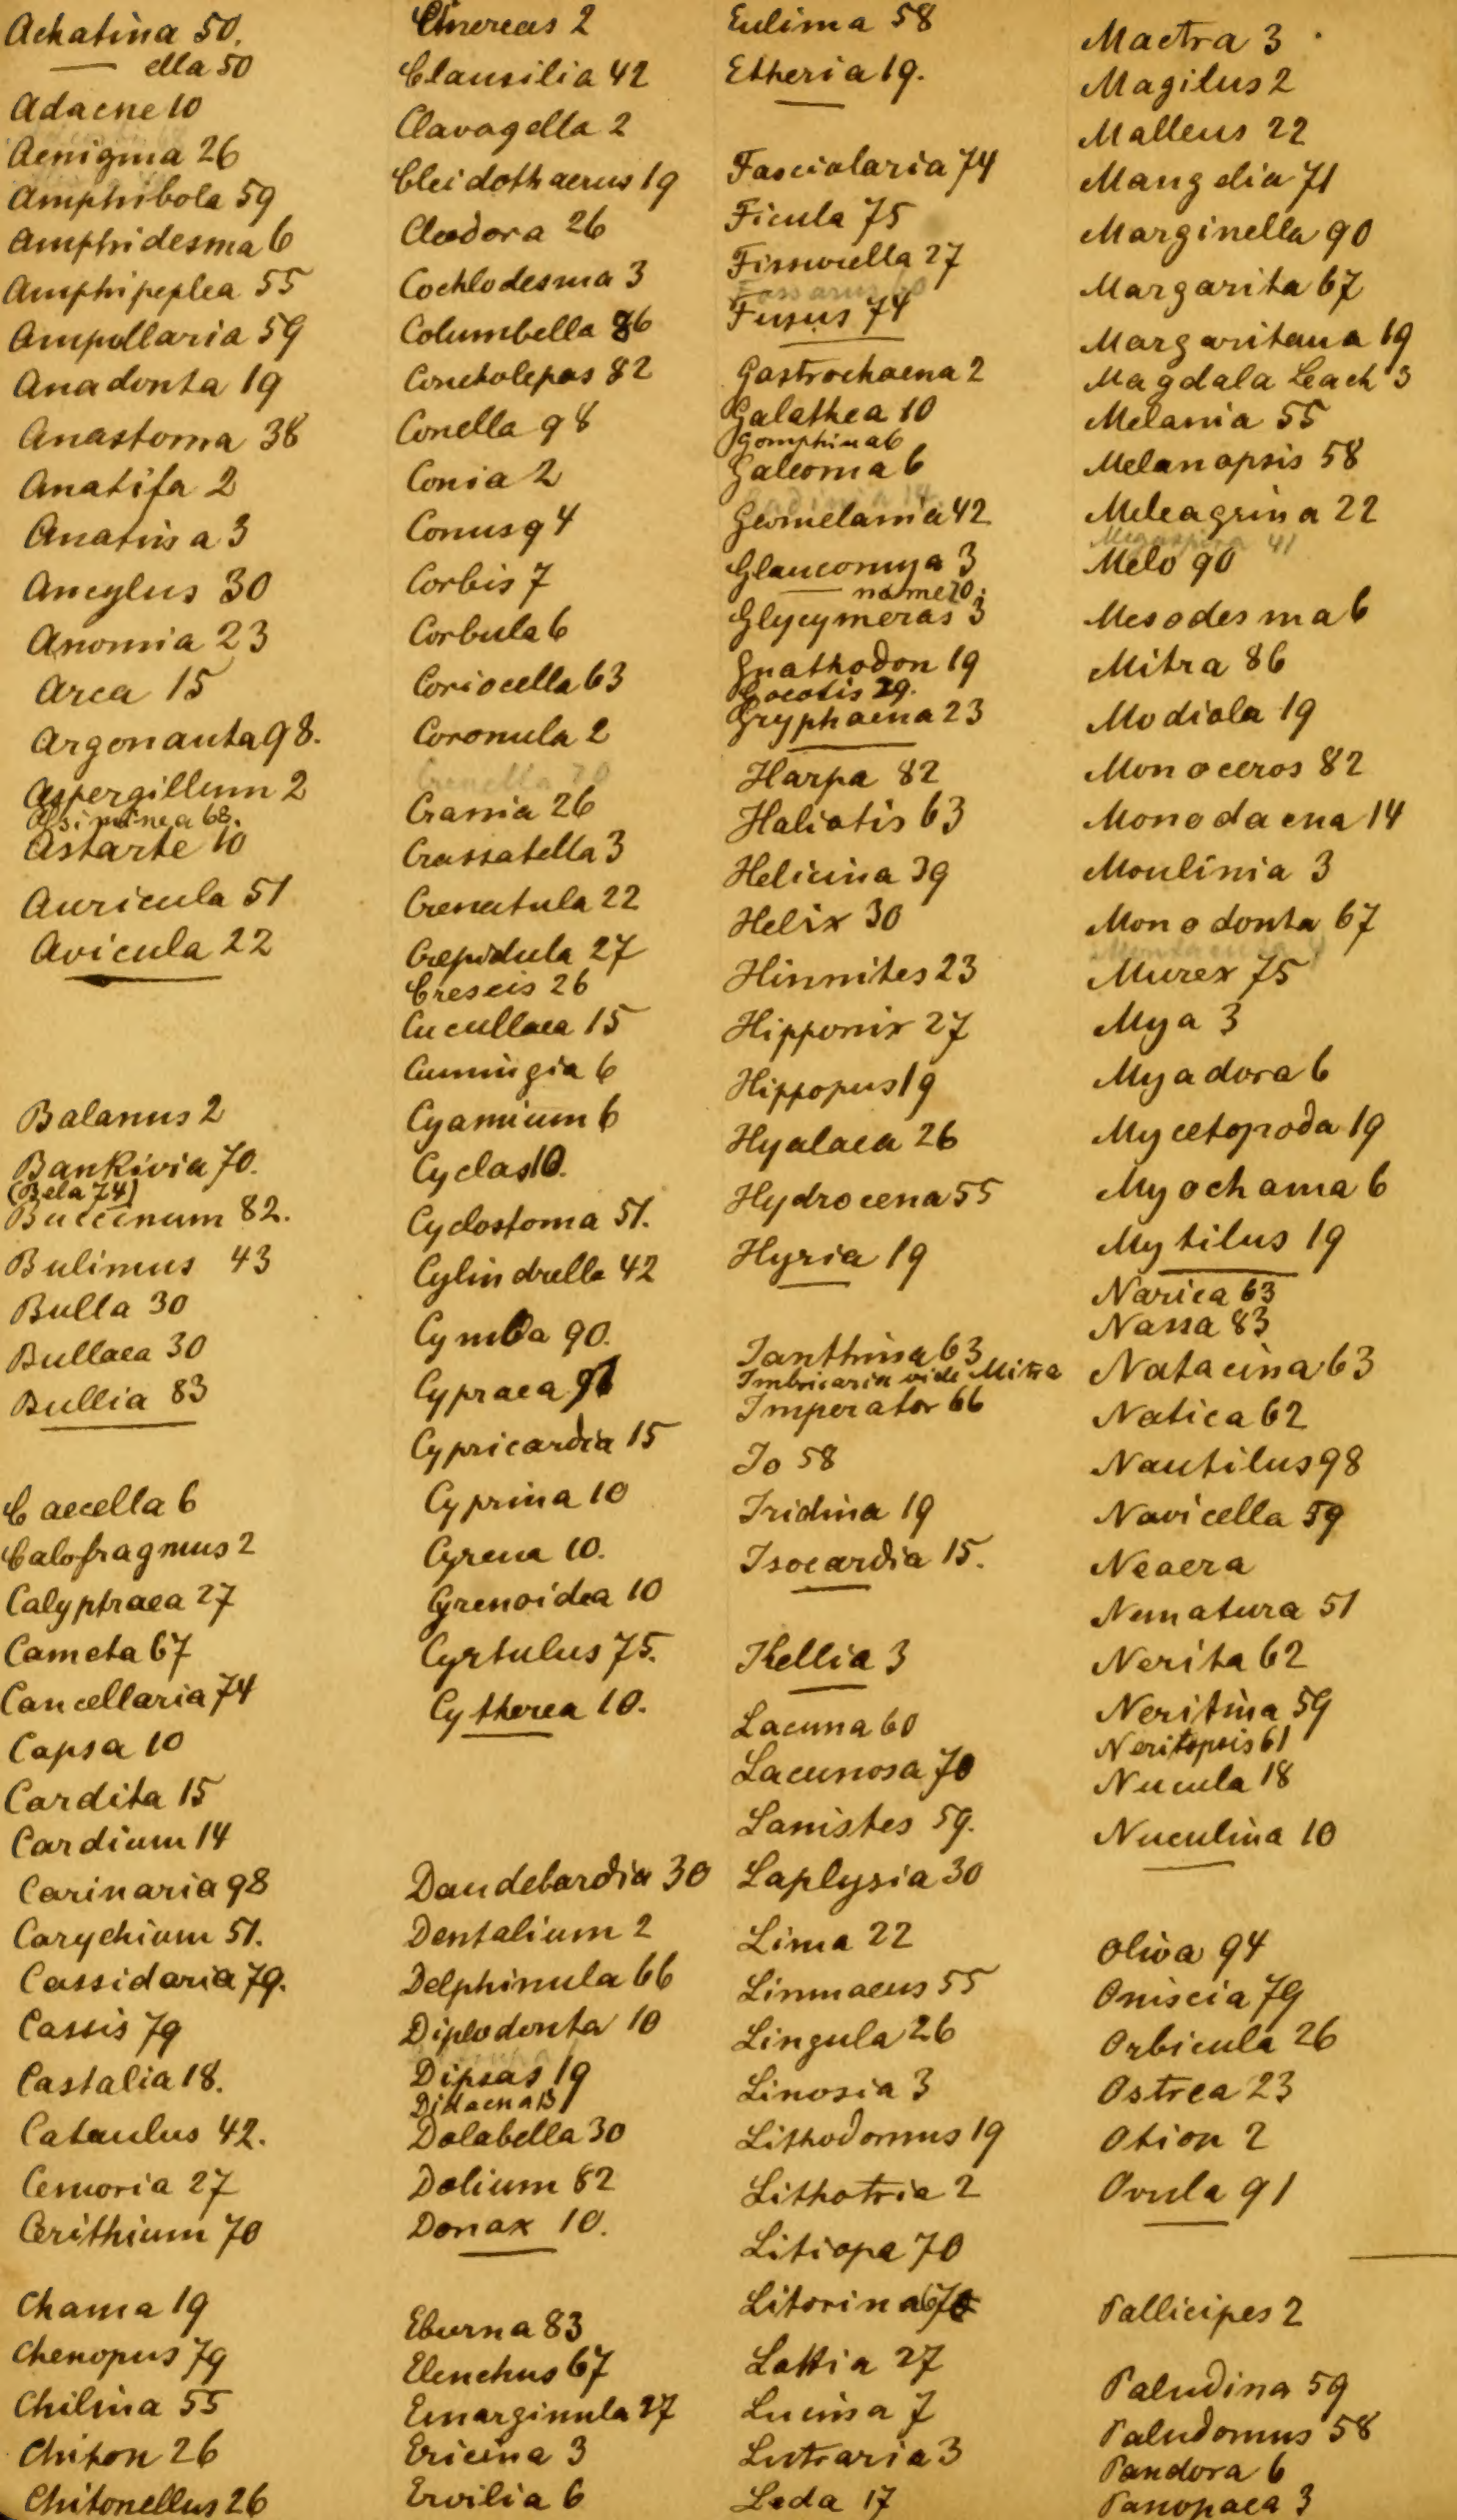 Achatina 50.
— ella 50
Adacne 10
Aenigma 26
Amphibola 59
Amphidesma 6
Amphipeplea 55
Ampullaria 59
Anadonta 19
Anastoma 38
Anatifa 2
Anatina 3
Ancylus 30
Anomia 23
Area 15
Argonauta 98.
Aspergillum 2
Assiminea 68.
Astarte 10
Auricula 51
Avicula 22
Balanus 2
Bankivia 70.
(Bela 74)
Buccinum 82.
Bulimus 43
Bulla 30
Bullaea 30
Bullia 83
Caecella 6
Calofragmus 2
Calyptraea 27
Cameta 67
Cancellaria 74
Capsa 10
Cardita 15
Cardium 14
Carinaria 98
Carychium 51.
Cassidaria 79.
Cassis 79
Castalia 18.
Cataulus 42.
Cemoria 27
Cerithium 70
Chama 19
Chenopus 79
Chilina 55
Chiton 26
Chitonellus 26
Cinereas 2
Clausilia 42
Clavagella 2
Cleidothaerus 19
Cleodora 26
Cochlodesma 3
Columbella 86
Concholepas 82
Conella 98
Conia 2
Conus 94
Corbis 7
Corbula 6
Coriocella 63
Coronula 2
Crenella 20
Crania 26
Crassatella 3
Crenatula 22
Crepidula 27
Creseis 26
Cucullaea 15
Cumingia 6
Cyamium 6
Cyclas 10.
Cyclostoma 51.
Cylindrella 42
Cymba 90.
Cypraea 91
Cypricardia 15
Cyprina 10
Cyrena 10.
Cyrenoidea 10
Cyrtulus 75.
Cytherea 10.
Daudebardia 30
Dentalium 2
Delphinula 66
Diplodonta 10
Dipsas 19
Didacna 13
Dolabella 30
Dolium 82
Donax 10.
Eburna 83
Elenchus 67
Emarginula 27
Ericina 3
Ervilia 6
Eulima 58
Etheria 19.
Fasciolaria 74
Ficula 75
Fissurella 27
Fossarus 60
Fusus 74
Gastrochaena 2
Galathea 10
Gomphina 6
Galeoma 6
Geomelania 42
Glauconnya 3
— nome 70.
Glycymeras 3
Gnathodon 19
29.
Gryphaena 23
Harpa 82
Haliotis 63
Helicina 39
Helix 30
Hinnites 23
Hipponix 27
Hippopus 19
Hyalaea 26
Hydrocena 55
Hyria 19
Ianthina 63
Imbricaria vide Mitra
Imperator 66
Io 58
Iridina 19
Isocardia 15.
Kellia 3
Lacuna 60
Lacunosa 70
Lanistes 59.
Laplysia 30
Lima 22
Limnaeus 55
Lingula 26
Linosia 3
Lithodomus 19
Lithotria 2
Litiopa 70
Litorina 67
Lottia 27
Lucina 7
Lutraria 3
Leda 17
Mactra 3
Magilus 2
Malleus 22
Mangelia 71
Marginella 90
Margarita 67
Margaritana 19
Magdala Leach 3
Melania 55
Melanopsis 58
Meleagrina 22
Megaspira 41
Melo 90
Mesodesma 6
Mitra 86
Modiola 19
Monoceros 82
Monodacna 14
Moulinia 3
Monodonta 67
Murex 75
Mya 3
Myadora 6
Mycetopoda 19
Myochama 6
Mytilus 19
Narica 63
Nassa 83
Natacina 63
Natica 62
Nautilus 98
Navicella 59
Neaera
Nematura 51
Nerita 62
Neritina 59
Neritopsis 61
Nucula 18
Nuculina 10
Oliva 94
Oniscia 79
Orbicula 26
Ostrea 23
Otion 2
Ovula 91
Pallicipes 2
Paludina 59
Paludomus 58
Pandora 6
Panopaea 3